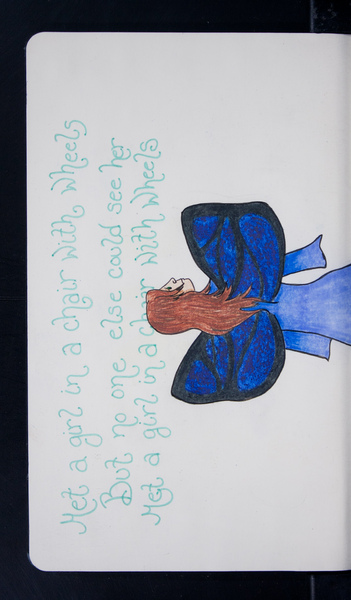 Met a girl in a chair with wheels
But no one else could see her
Met a girl in a chair with wheels